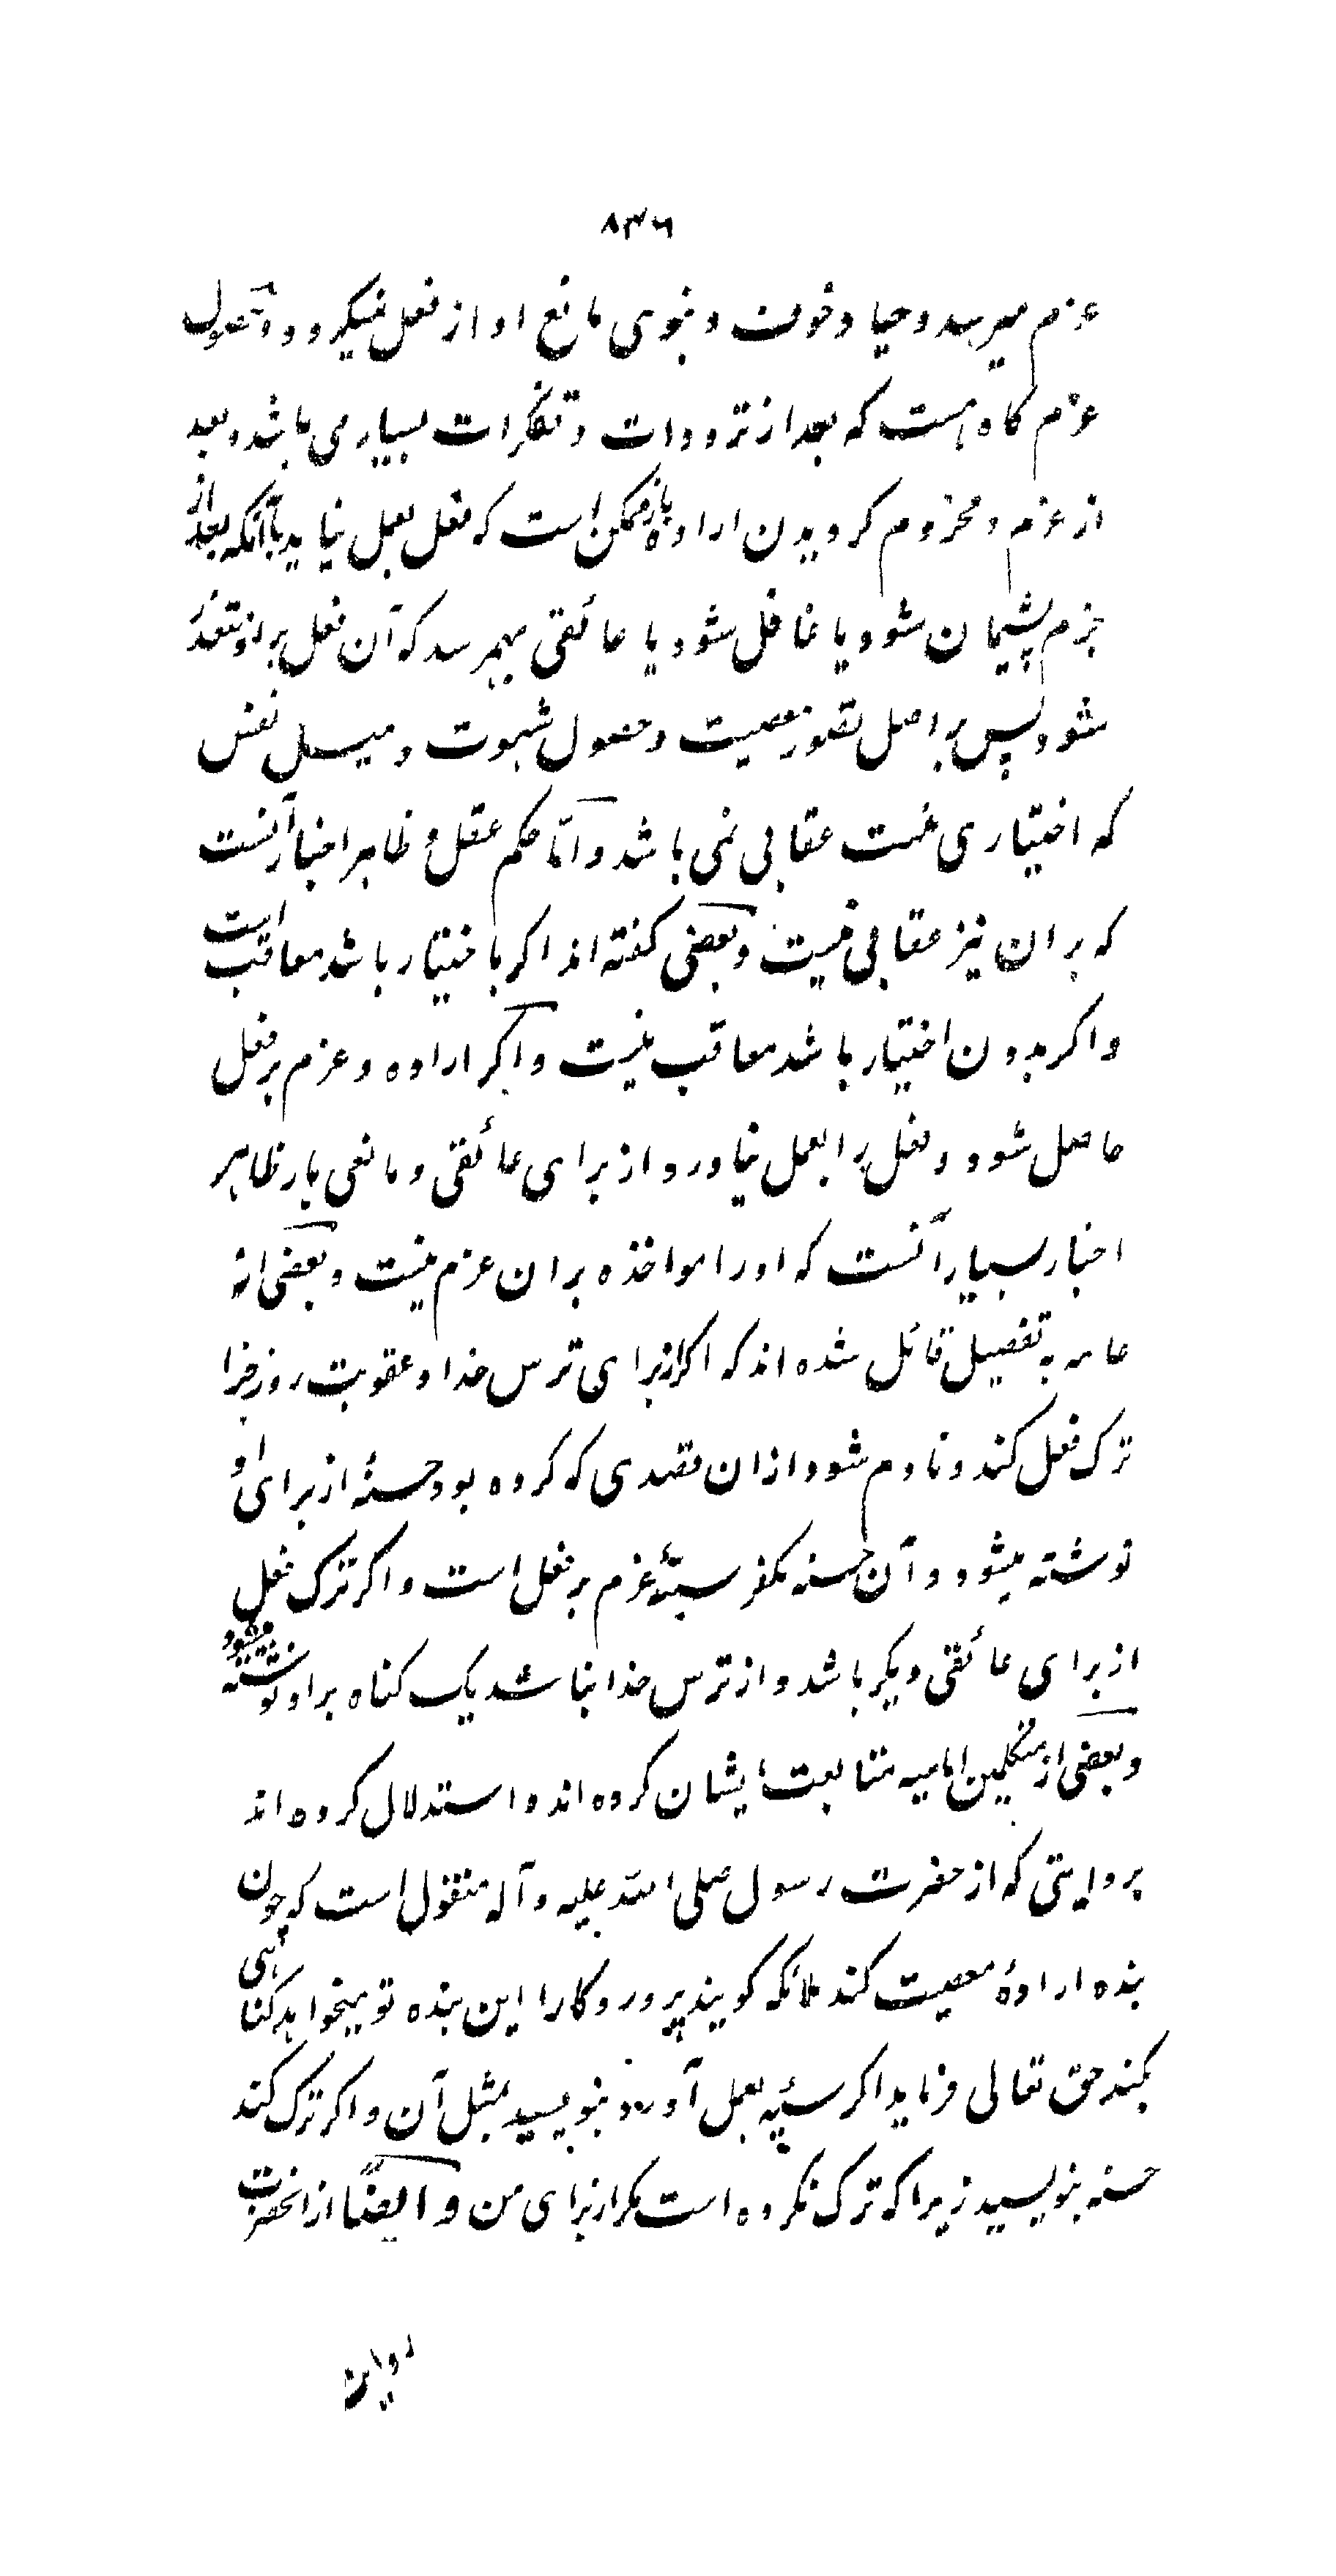 ۸۳۶
عزم میرسد و حیا و خوف و نحوی مانع او از فعل نمیگردد و حصول
عزم گاه هست که بعد از ترددات و تفکرات بسیار می باشد و بعد
از عزم و مجزوم گردیدن اراده باز ممکن است که فعل بعمل نیاید یا آنکه بعد از
جزم پشیمان شود یا غافل شود یا عائقی بهمرسد که آن فعل بر او متعذر
شود پس بر اصل تصور معصیت و حصول شهوت و میل نفس
که اختیاری نیست عقابی نمی باشد و امّا حکم عقل و ظاهر اخبار آنست
که بر ان نیز عقابی نیست و بعضی گفته اند اگر باختیار باشد معاقب است
و اگر بدون اختیار باشد معاقب نیست و اگر اراده و عزم بر فعل
حاصل شود و فعل را بعمل نیاورد از برای عائقی و مانعی باز ظاهر
اخبار بسیار آنست که او را مواخذه بر ان عزم نیست و بعضی از
عامه به تفصیل قائل شده اند که اگر از برای ترس خدا و عقوبت روز جزا
ترک فعل کند و نادم شود از ان قصدی که کرده بود حسنهٔ از برای او
نوشته میشود و آن حسنه مکفر سیّئهٔ عزم بر فعل است و اگر ترک فعل
از برای عائقی دیگر باشد و از ترس خدا نباشد یک گناه بر او نوشته میشود
و بعضی از متکلمین امامیه متابعت ایشان کرده اند و استدلال کرده اند
بروایتی که از حضرت رسول صلی الله علیه و آله منقول است که چون
بنده ارادهٔ معصیت کند ملائکه گویند پروردگارا این بنده تو میخواهد گناهی
بکند حق تعالی فرماید اگر سیّئه بعمل آورد بنویسید مثل آن و اگر ترک کند
حسنه بنویسید زیرا که ترک نکرده است مگر از برای من و ایضًا از انحضرت
روایت